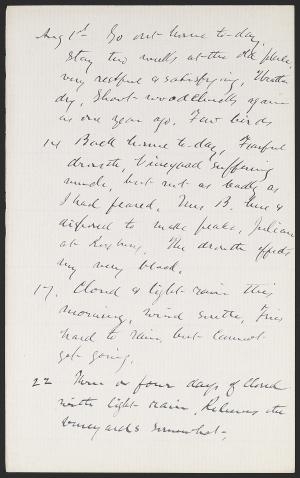 Aug 1st Go out home to-day,
stay two weeks at the old place,
very restful & satisfying, Weather
dry, Shoot woodchucks again
as one year ago. Few birds
14 Back home to-day, Fearful
drouth, Vineyard suffering
much, but not as badly as
I had feared. Mrs B. here &
disposed to make peace. Julian
at Roxbury. The drouth affects
my very blood.
17. Cloud & light rain this
morning, wind south, Tries
hard to rain, but cannot
get going.
22 Three or four days of cloud
with light rain, Relieves the
vineyards somewhat.